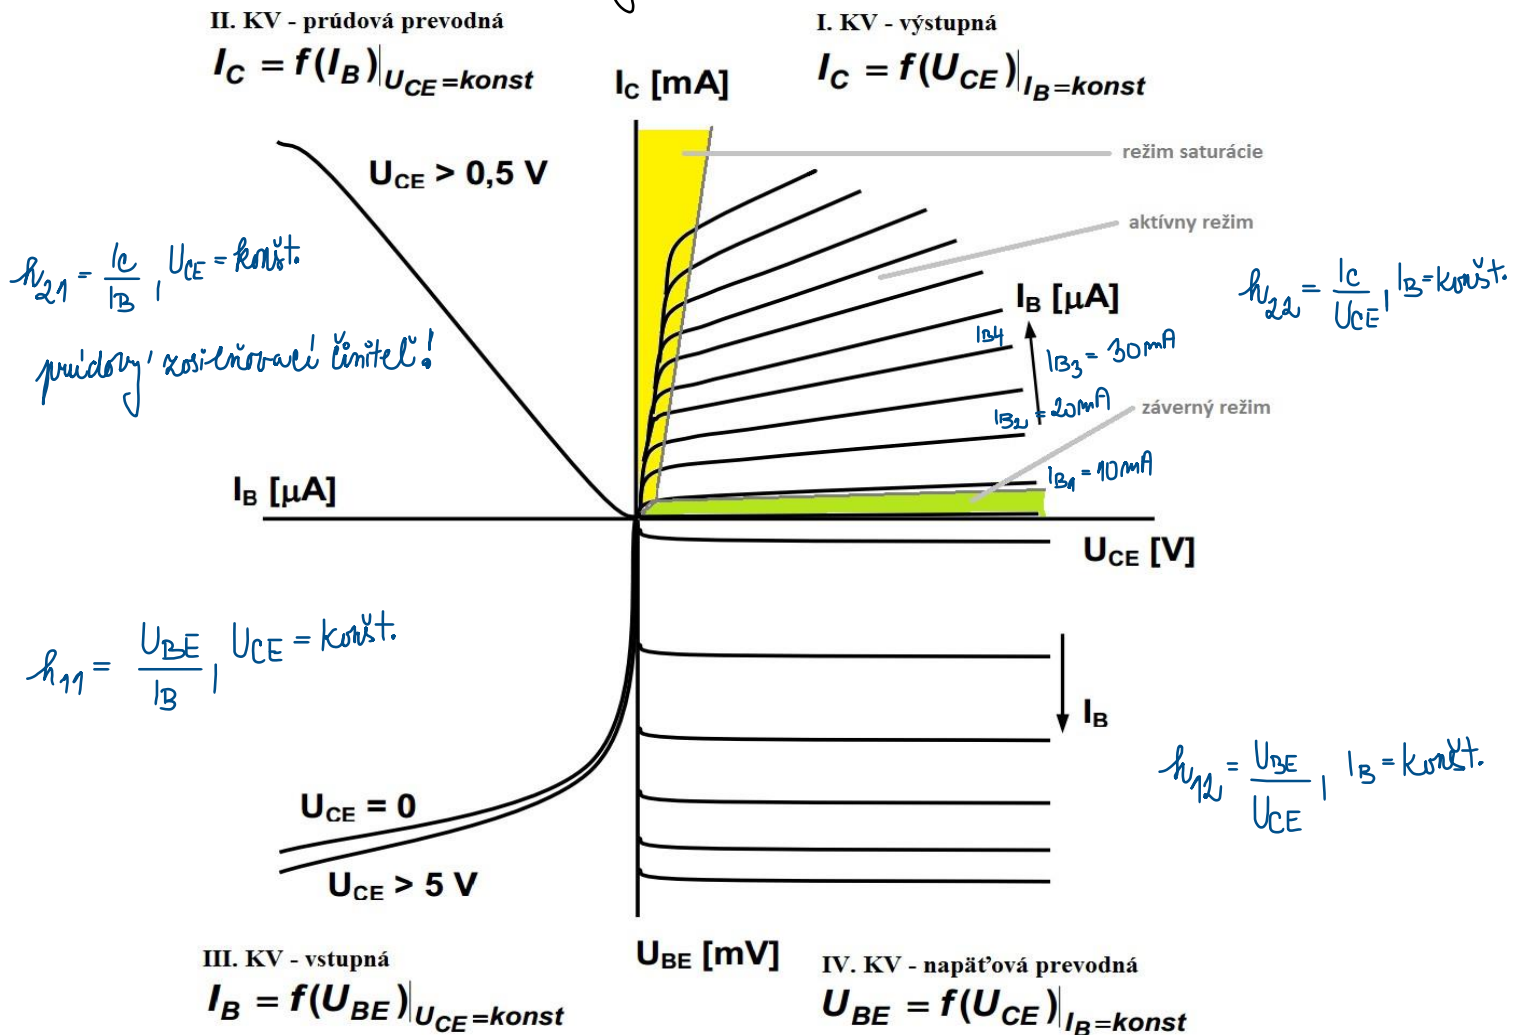 II. KV - prúdová prevodná
I_C = f(I_B)|U_CE=konst
I. KV - výstupná
I_C = f(U_CE)|I_B=konst
I_C [mA]
U_CE > 0,5 V
režim saturácie
aktívny režim
h_21 = I_C / I_B , U_CE = konšt.
prúdový zosilňovací činiteľ!
h_22 = I_C / U_CE , I_B = konšt.
I_B [μA]
I_B4
I_B3 = 30mA
I_B2 = 20mA
záverný režim
I_B1 = 10mA
I_B [μA]
U_CE [V]
h_11 = U_BE / I_B , U_CE = konšt.
I_B
h_12 = U_BE / U_CE , I_B = konšt.
U_CE = 0
U_CE > 5 V
III. KV - vstupná
I_B = f(U_BE)|U_CE=konst
U_BE [mV]
IV. KV - napäťová prevodná
U_BE = f(U_CE)|I_B=konst